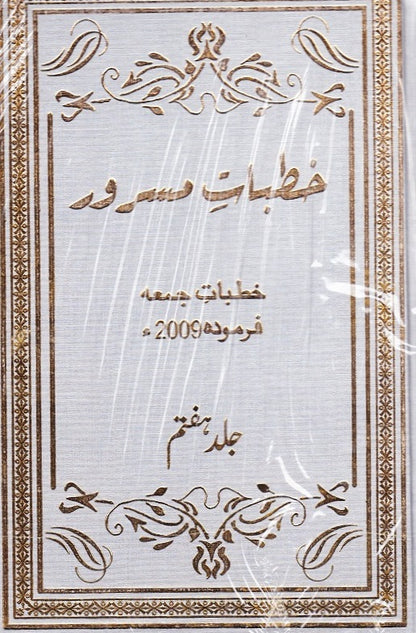 خطباتِ مسرور
خطباتِ جمعه
فرموده 2009ء
جلد ہفتم